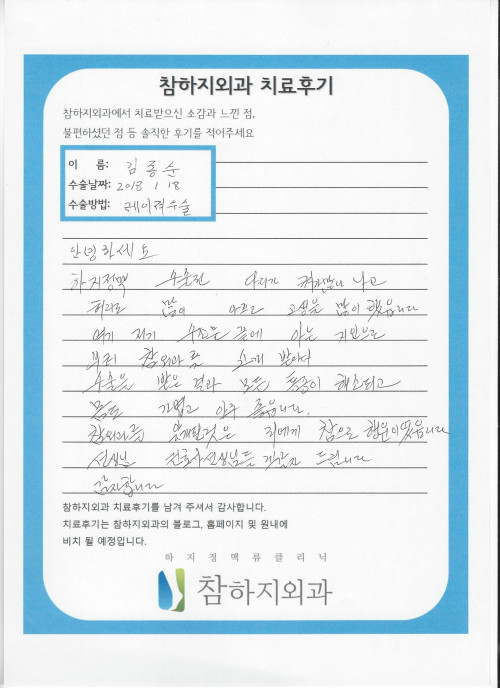 참하지외과 치료후기
참하지외과에서 치료받으신 소감과 느낀 점,
불편하셨던 점 등 솔직한 후기를 적어주세요
이 름: 김종순
수술날짜: 2018 1 18
수술방법: 레이져수술
안녕하세요
하지정맥 수술전 다리가 나고
허리도 많이 아프고 고생을 많이 했읍니다
여기 저기 수소문 끝에 아는 지인으로
부터 참외과를 소개 받아서
수술을 받은 결과 모든 통증이 해소되고
몸도 가볍고 아주 좋읍니다.
참외과를 것은 저에게 참으로 행운이였읍니다
선생님 간호사선생님들 감사 드립니다
감사합니다
참하지외과 치료후기를 남겨 주셔서 감사합니다.
치료후기는 참하지외과의 블로그, 홈페이지 및 원내에
비치 될 예정입니다.
하지정맥류클리닉
참하지외과